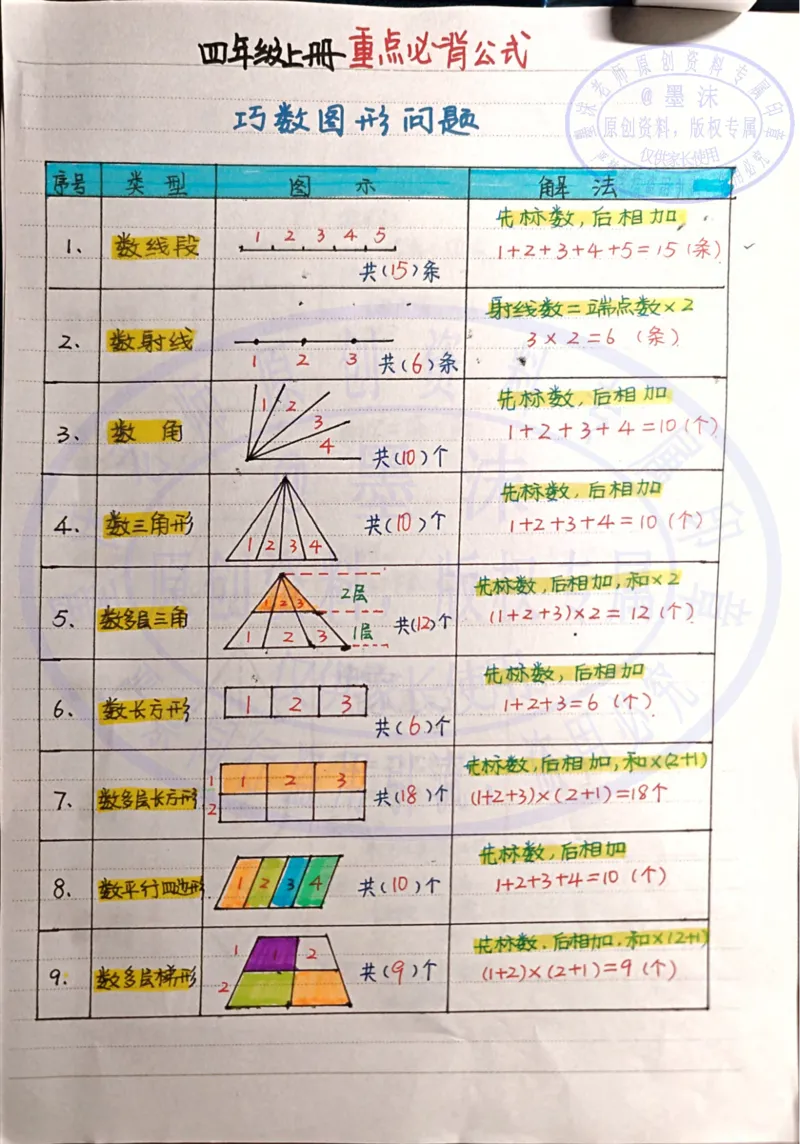 四年级上册重点必背公式
巧数图形问题
墨沫老师原创资料专属印章
@墨沫
原创资料,版权专属
仅供家长使用
序号 类型 图示 解法
1. 数线段 1 2 3 4 5 共(15)条 先标数,后相加,
1+2+3+4+5=15(条)
2. 数射线 1 2 3 共(6)条 射线数=端点数×2
3×2=6 (条)
3. 数角 1 2 3 4 共(10)个 先标数,后相加
1+2+3+4=10(个)
4. 数三角形 1 2 3 4 共(10)个 先标数,后相加
1+2+3+4=10(个)
5. 数多层三角 1 2 3 2层 1 2 3 1层 共(12)个 先标数,后相加,和×2
(1+2+3)×2=12(个)
6. 数长方形 1 2 3 共(6)个 先标数,后相加
1+2+3=6(个)
7. 数多层长方形 1 1 2 3 2 共(18)个 先标数,后相加,和×(2+1)
(1+2+3)×(2+1)=18个
8. 数平行四边形 1 2 3 4 共(10)个 先标数,后相加
1+2+3+4=10(个)
9. 数多层梯形 1 1 2 2 共(9)个 先标数,后相加,和×(2+1)
(1+2)×(2+1)=9(个)